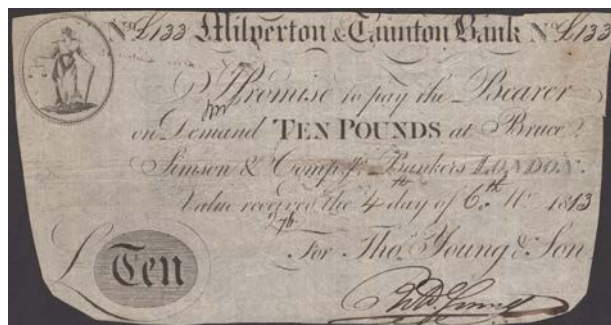 No. £133 Milverton & Taunton Bank No. £133
I Promise to pay the Bearer
on Demand TEN POUNDS at Bruce
Simson & Compy. Bankers LONDON.
Value received the 4th day of 6th Mo. 1813
For Thos. Young & Son
£ Ten